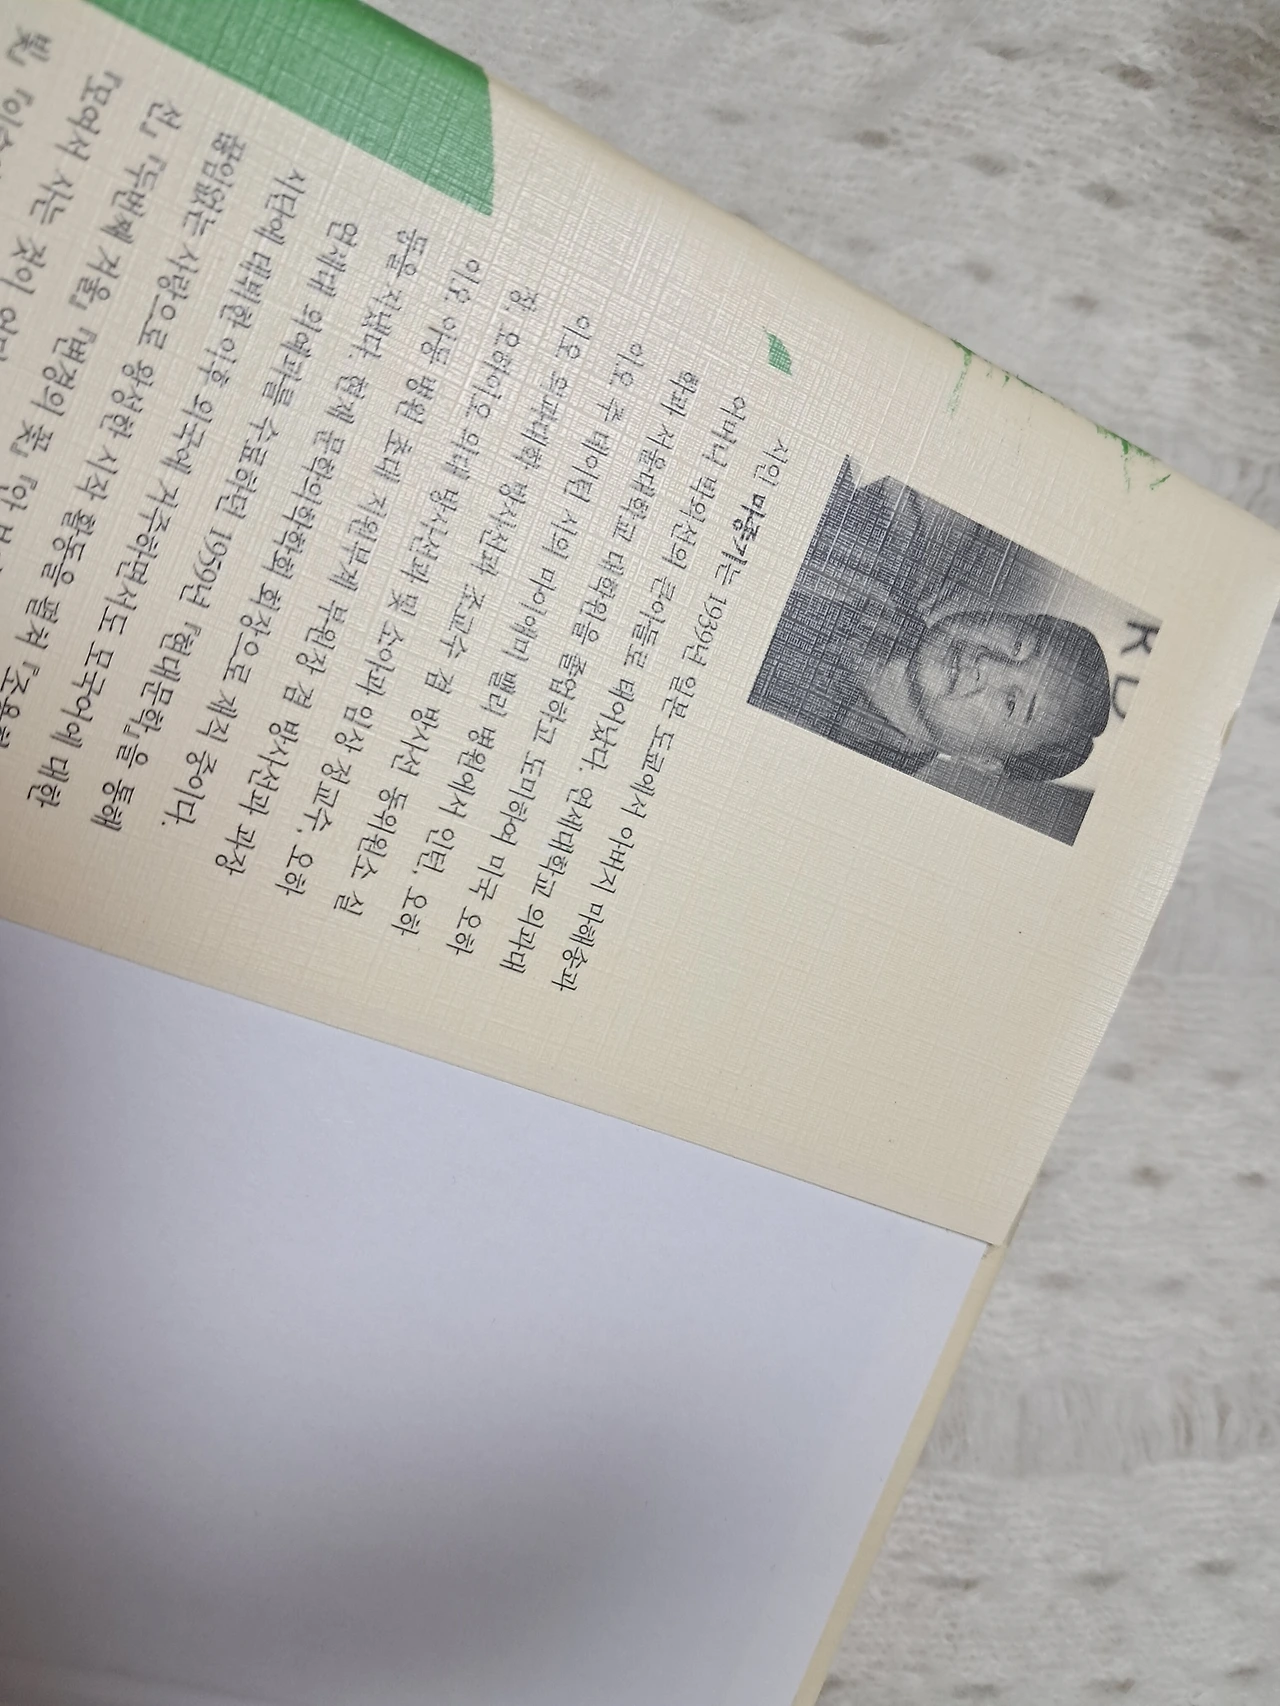 KU
시인 마종기는 1939년 일본 도쿄에서 아버지 마해송과
어머니 박외선의 큰아들로 태어났다. 연세대학교 의과대
학과 서울대학교 대학원을 졸업하고 도미하여 미국 오하
이오 주 데이턴 시의 마이애미 밸리 병원에서 인턴, 오하
이오 의과대학 방사선과 조교수 겸 방사선 동위원소 실
장, 오하이오 의대 방사선과 및 소아과 임상 정교수, 오하
이오 아동 병원 초대 직원부제 부원장 겸 방사선과 과장
등을 지냈다. 현재 문학의학학회 회장으로 재직 중이다.
연세대 의예과를 수료하던 1959년 『현대문학』을 통해
시단에 데뷔한 이후 외국에 거주하면서도 모국어에 대한
끊임없는 사랑으로 왕성한 시작 활동을 펼쳐 『조용한
선』 『두번째 겨울』 『변경의 꽃』 『안 보
『모여서 사는 것이 어디
빛』 『이슬